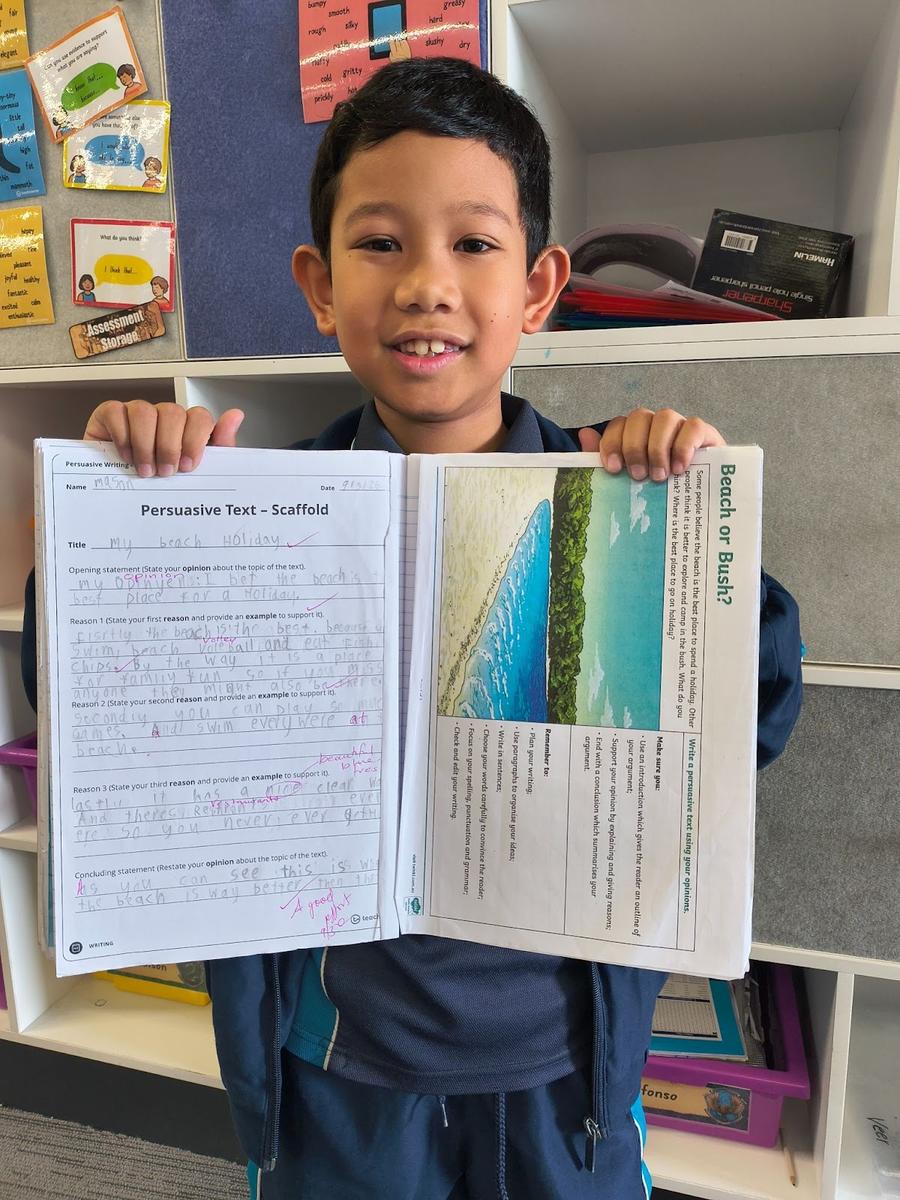 fair
elegant
Can you use evidence to support
what you are saying?
I know that...
because...
little
tall
high
fat
thin
mammoth
happy
pleasant
joyful healthy
fantastic
excited calm
enthusiastic
What do you think?
I think that...
Assessment
Storage
bumpy
smooth
greasy
rough silky
hard
slushy dry
cold gritty
prickly
HAMELIN
Single hole pencil sharpener
sharpener
Persuasive Writing
Name mason
Date
Persuasive Text – Scaffold
Title my beach Holiday
Opening statement (State your opinion about the topic of the text).
opinion
my I bet the beach is
best place for a Holiday.
Reason 1 (State your first reason and provide an example to support it).
firstly the beach is the best because
volley
swim, beach ball and eat
chips. By the way it is a place
for family fun so if you miss
anyone they might also be there.
Reason 2 (State your second reason and provide an example to support it).
Secondly you can play so
games. And swim everywere at
beach.
beautiful
blue
Reason 3 (State your third reason and provide an example to support it).
lastly it has a nice clear
restaurants
And theres
so you never ever
Concluding statement (Restate your opinion about the topic of the text).
As you can see this is
the beach is way better
A good
effort
teach
WRITING
Beach or Bush?
Some people believe the beach is the best place to spend a holiday. Other
people think it is better to explore and camp in the bush. What do you
think? Where is the best place to go on holiday?
Write a persuasive text using your opinions.
Make sure you:
• Use an introduction which gives the reader an outline of
your argument;
• Support your opinion by explaining and giving reasons;
• End with a conclusion which summarises your
argument.
Remember to:
• Plan your writing;
• Use paragraphs to organise your ideas;
• Write in sentences;
• Choose your words carefully to convince the reader;
• Focus on your spelling, punctuation and grammar;
• Check and edit your writing.
visit twinkl.com.au
fonso